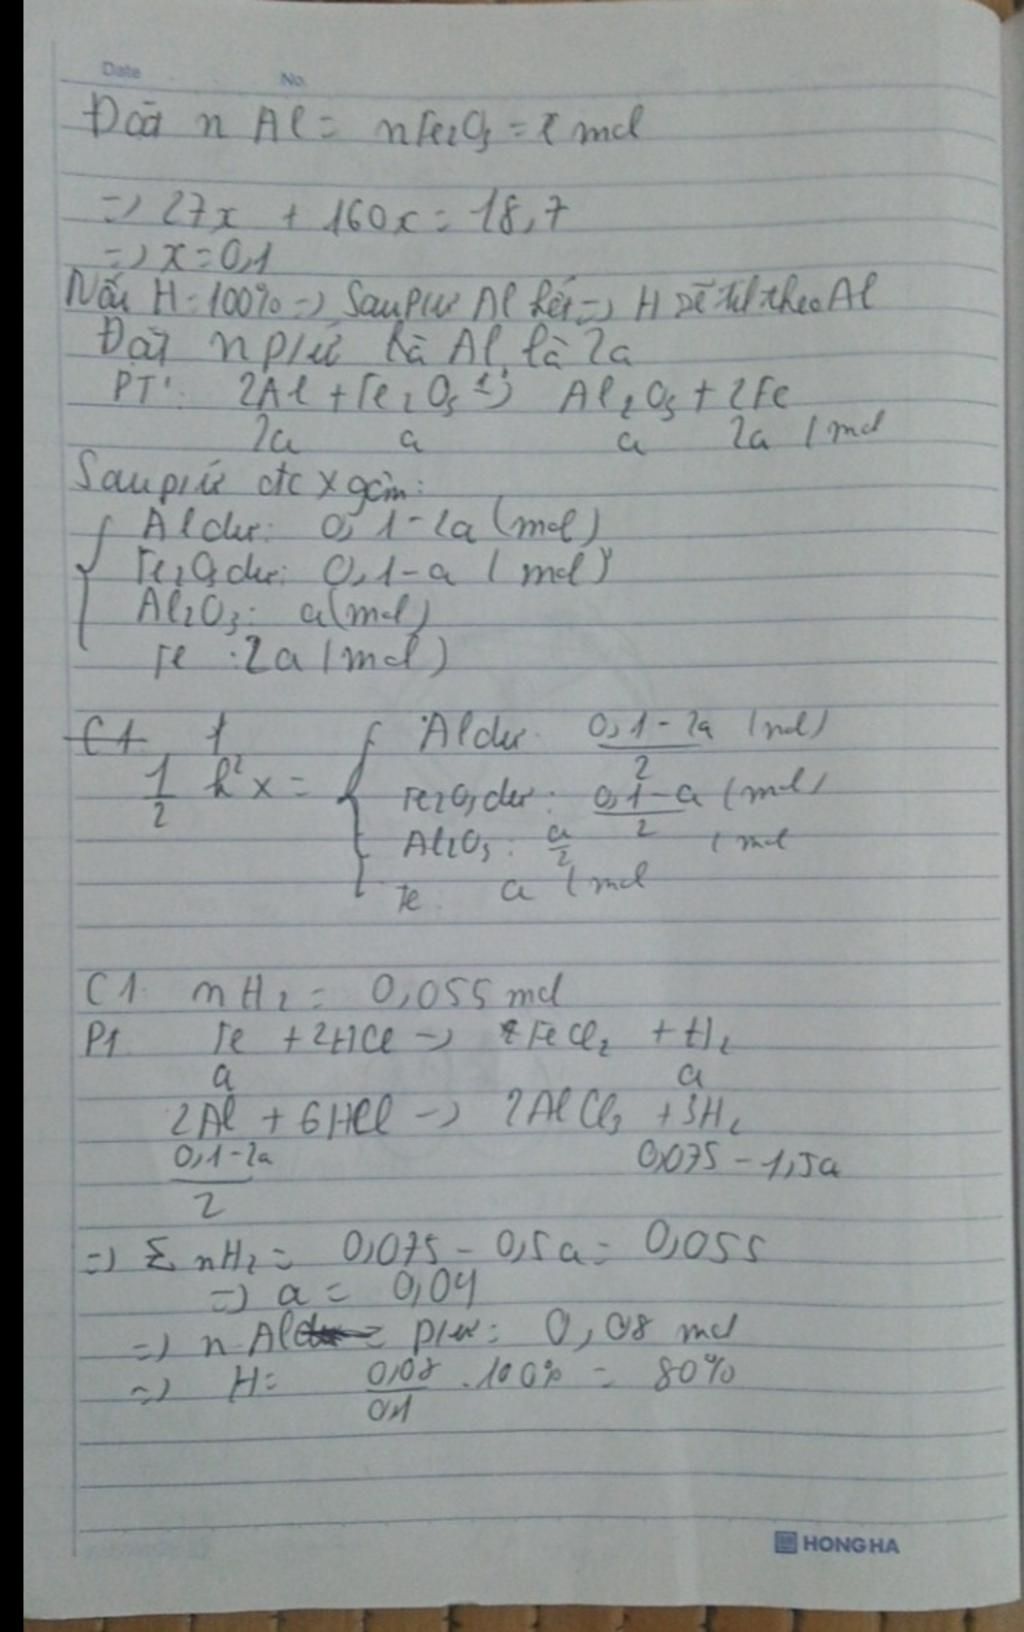 Date No.
Đặt n Al = nFe2O3 = x mol
=> 27x + 160x = 18,7
=> x = 0,1
Nếu H = 100% => Sau pư Al hết => H sẽ tính theo Al
Đặt n pứ của Al là 2a
PT: 2Al + Fe2O3 -> Al2O3 + 2Fe
2a a a 2a (mol
Sau pứ đc X gồm:
Al dư: 0,1-2a (mol)
Fe2O3 dư: 0,1-a (mol)
Al2O3: a(mol)
Fe : 2a (mol)
C1
1/2 h² X = Al dư (0,1-2a)/2 (mol)
Fe2O3 dư: (0,1-a)/2 (mol)
Al2O3: a/2 (mol
Fe: a (mol
C1 nH2 = 0,055 mol
P1 Fe + 2HCl -> FeCl2 + H2
a a
2Al + 6HCl -> 2AlCl3 + 3H2
(0,1-2a)/2 0,075 - 1,5a
=> Σ nH2 = 0,075 - 0,5a = 0,055
=> a = 0,04
=> n Al pư = 0,08 mol
=> H = 0,08/0,1 .100% = 80%
HONG HA